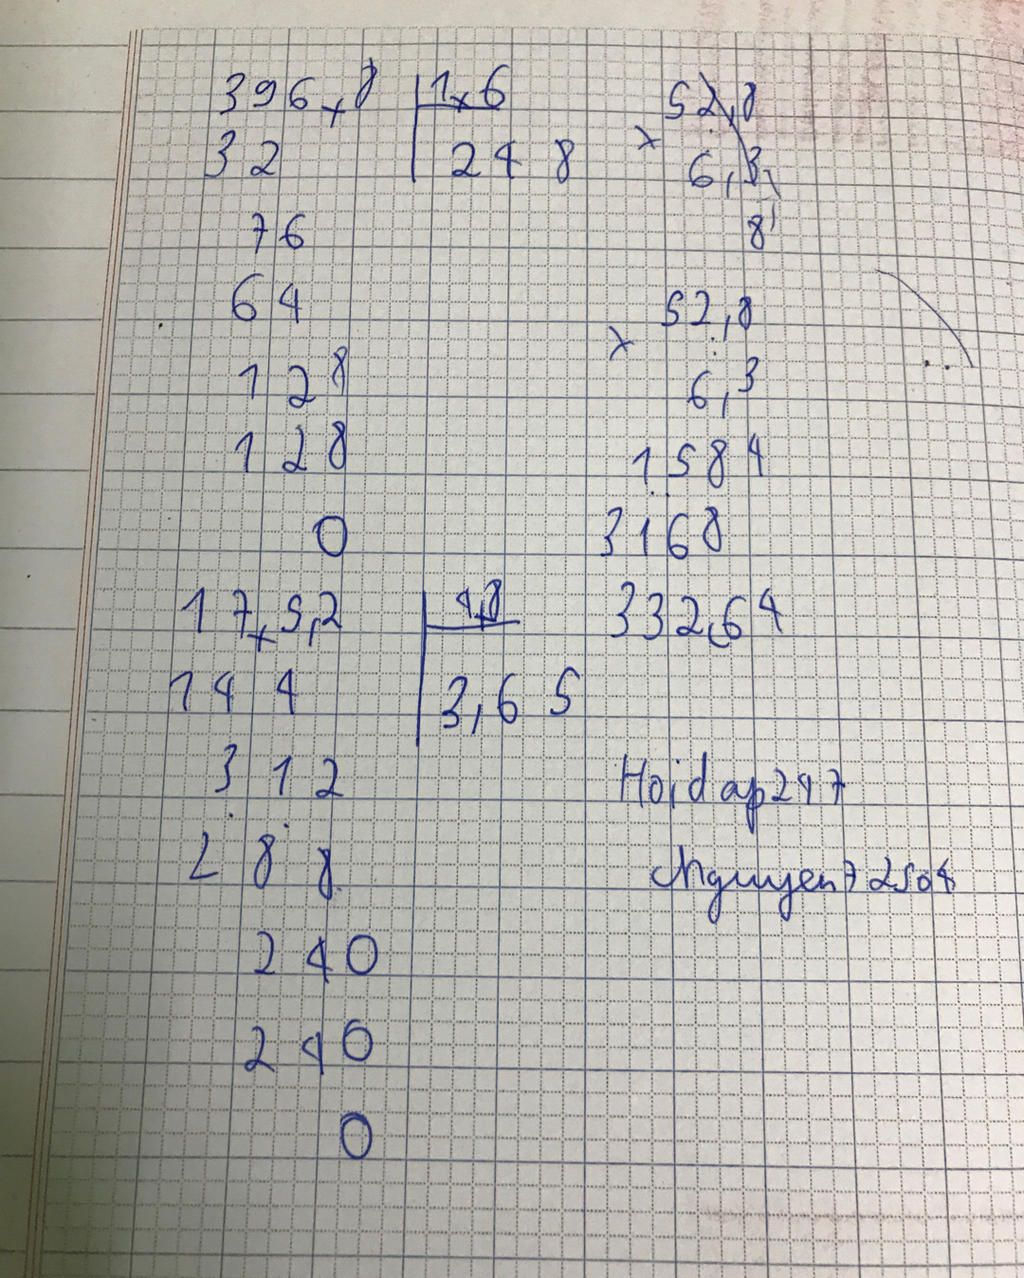 396,8 | 1,6
32 | 248
76
64
128
128
0
17,5,2 | 4,8
144 | 3,65
312
288
240
240
0
52,8
x
6,3
8
52,8
x
6,3
1584
3168
332,64
Hoidap247
Nguyen72504